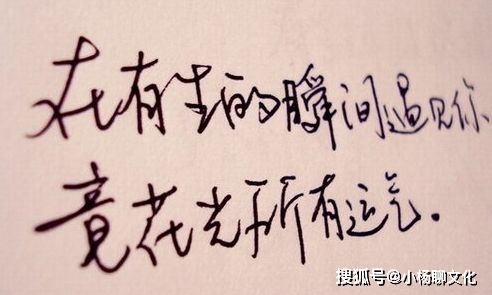 在有生的瞬间遇见你
竟花光所有运气.
搜狐号@小杨聊文化